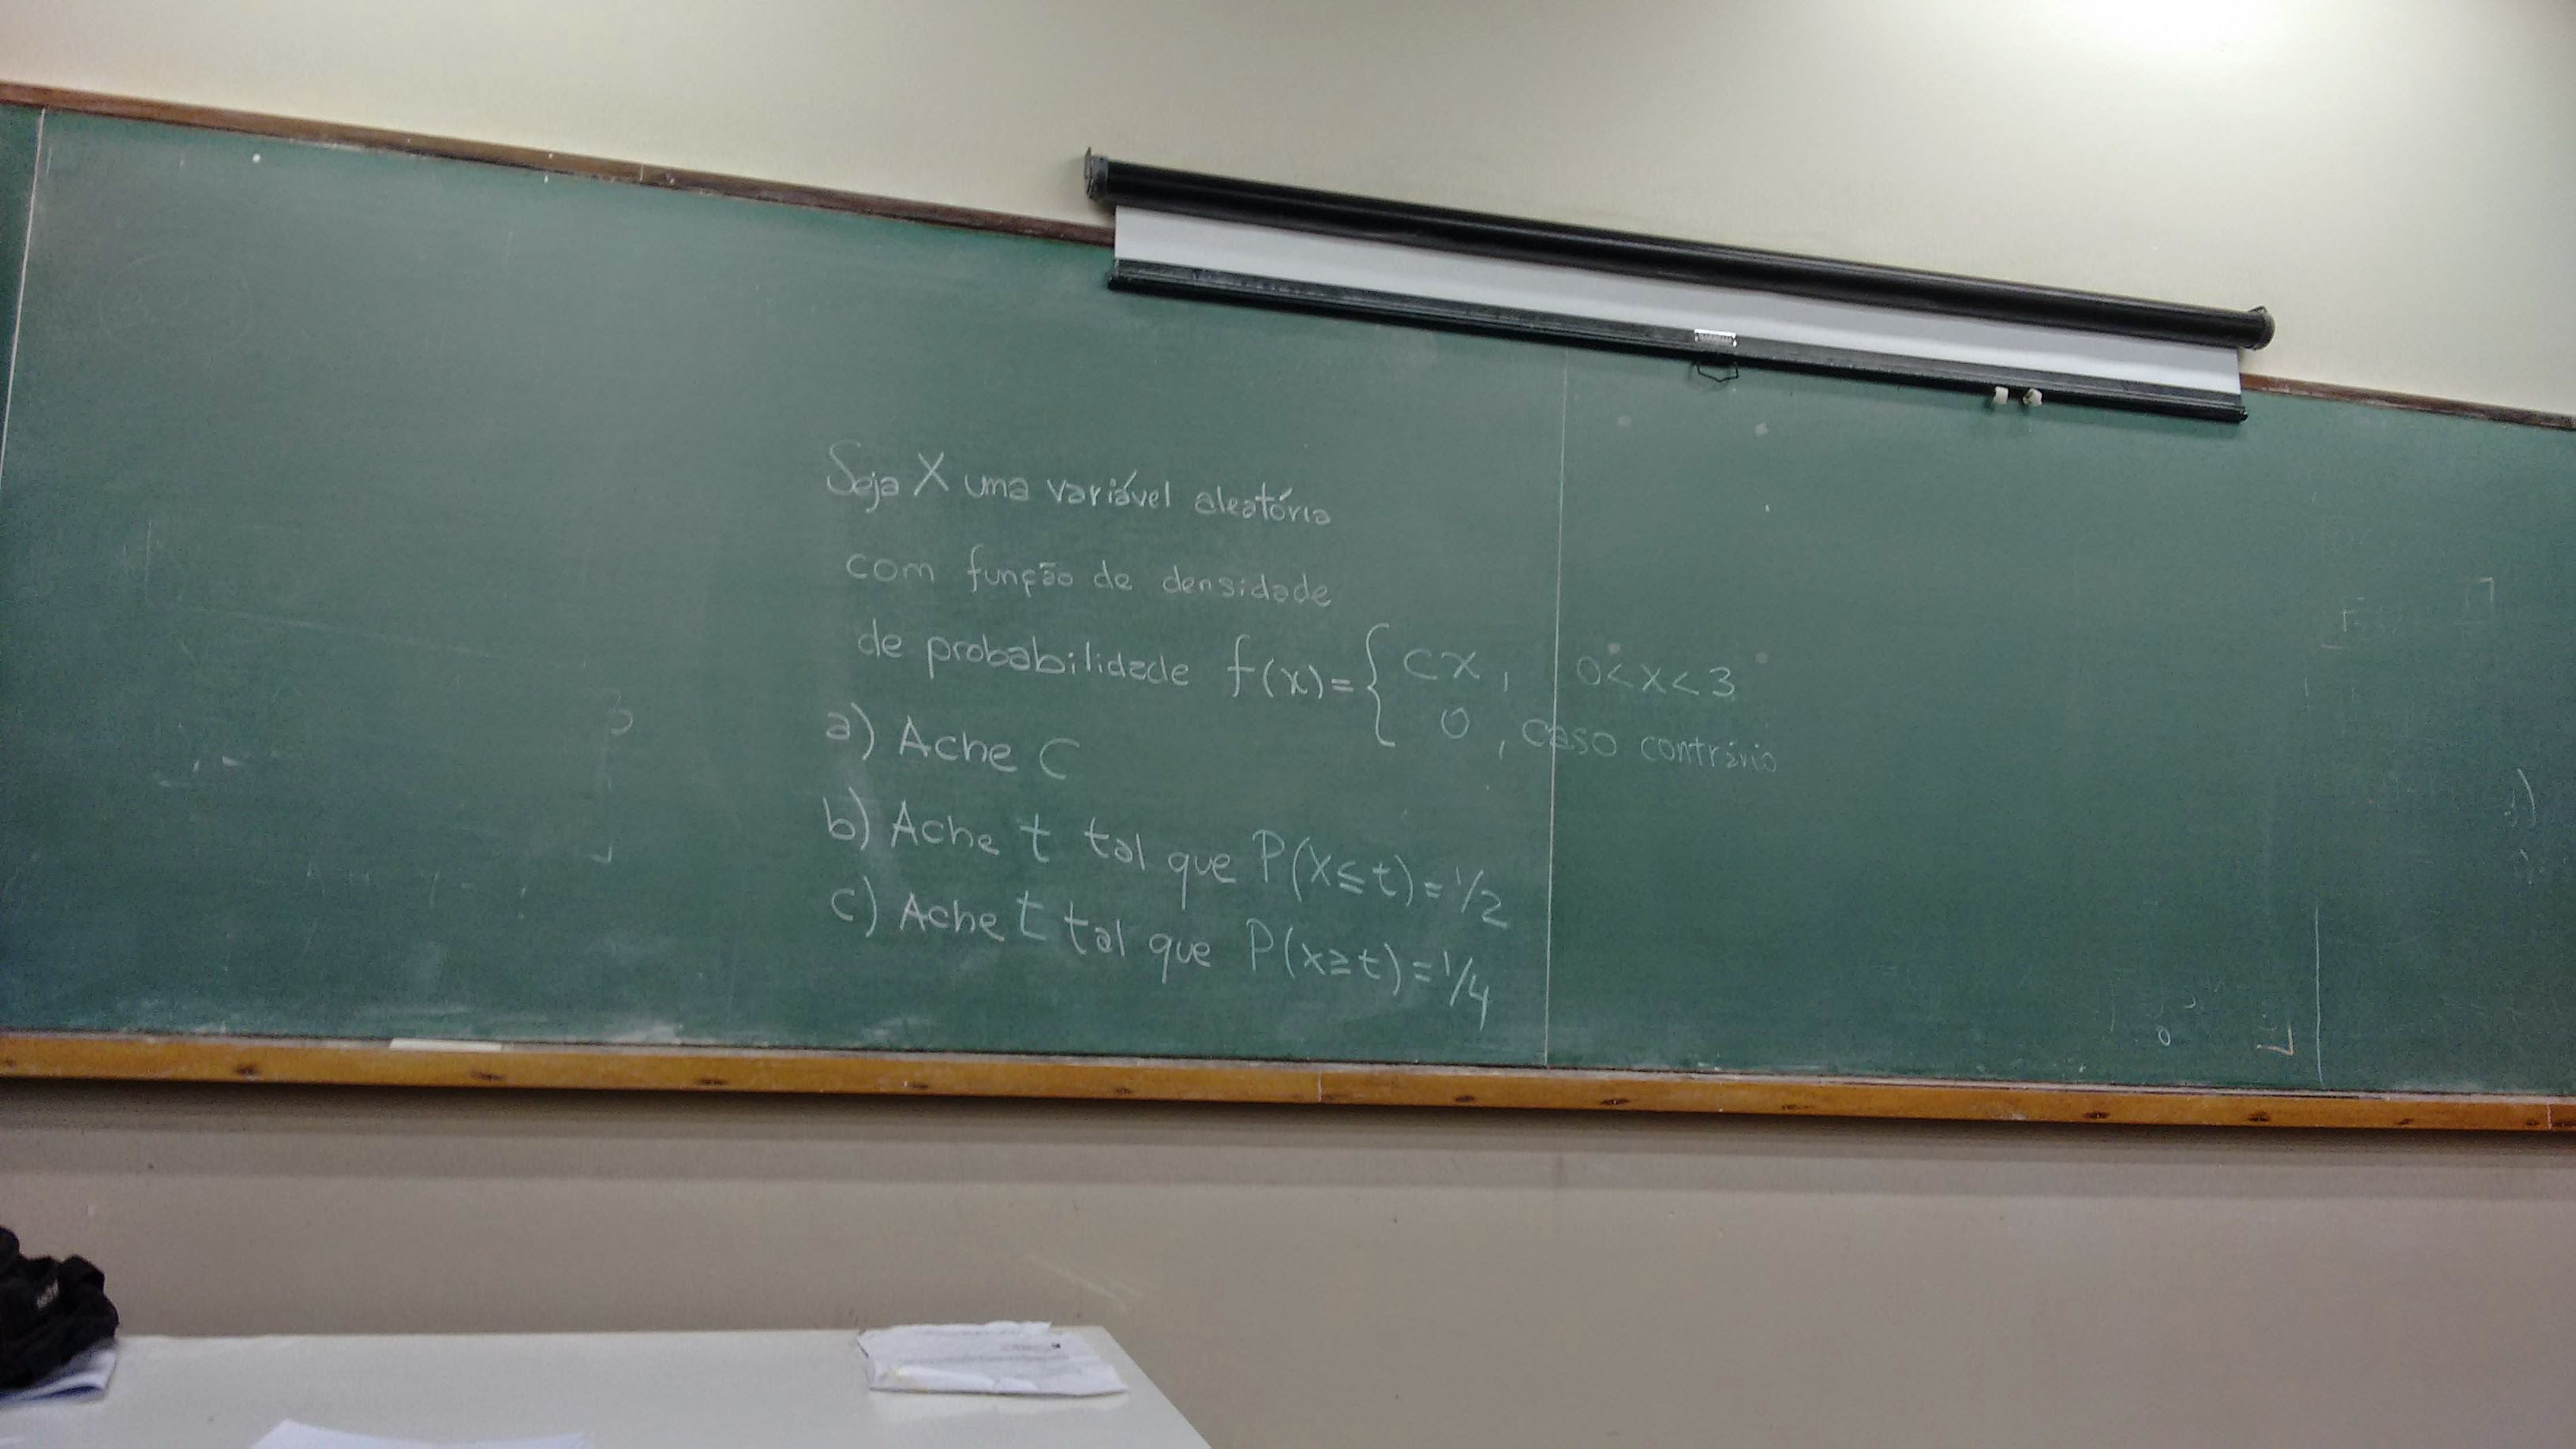 Seja X uma variável aleatória
com função de densidade
de probabilidade f(x)= { cx, 0<x<3
0, caso contrário
a) Ache C
b) Ache t tal que P(X≤t)=1/2
c) Ache t tal que P(x≥t)=1/4